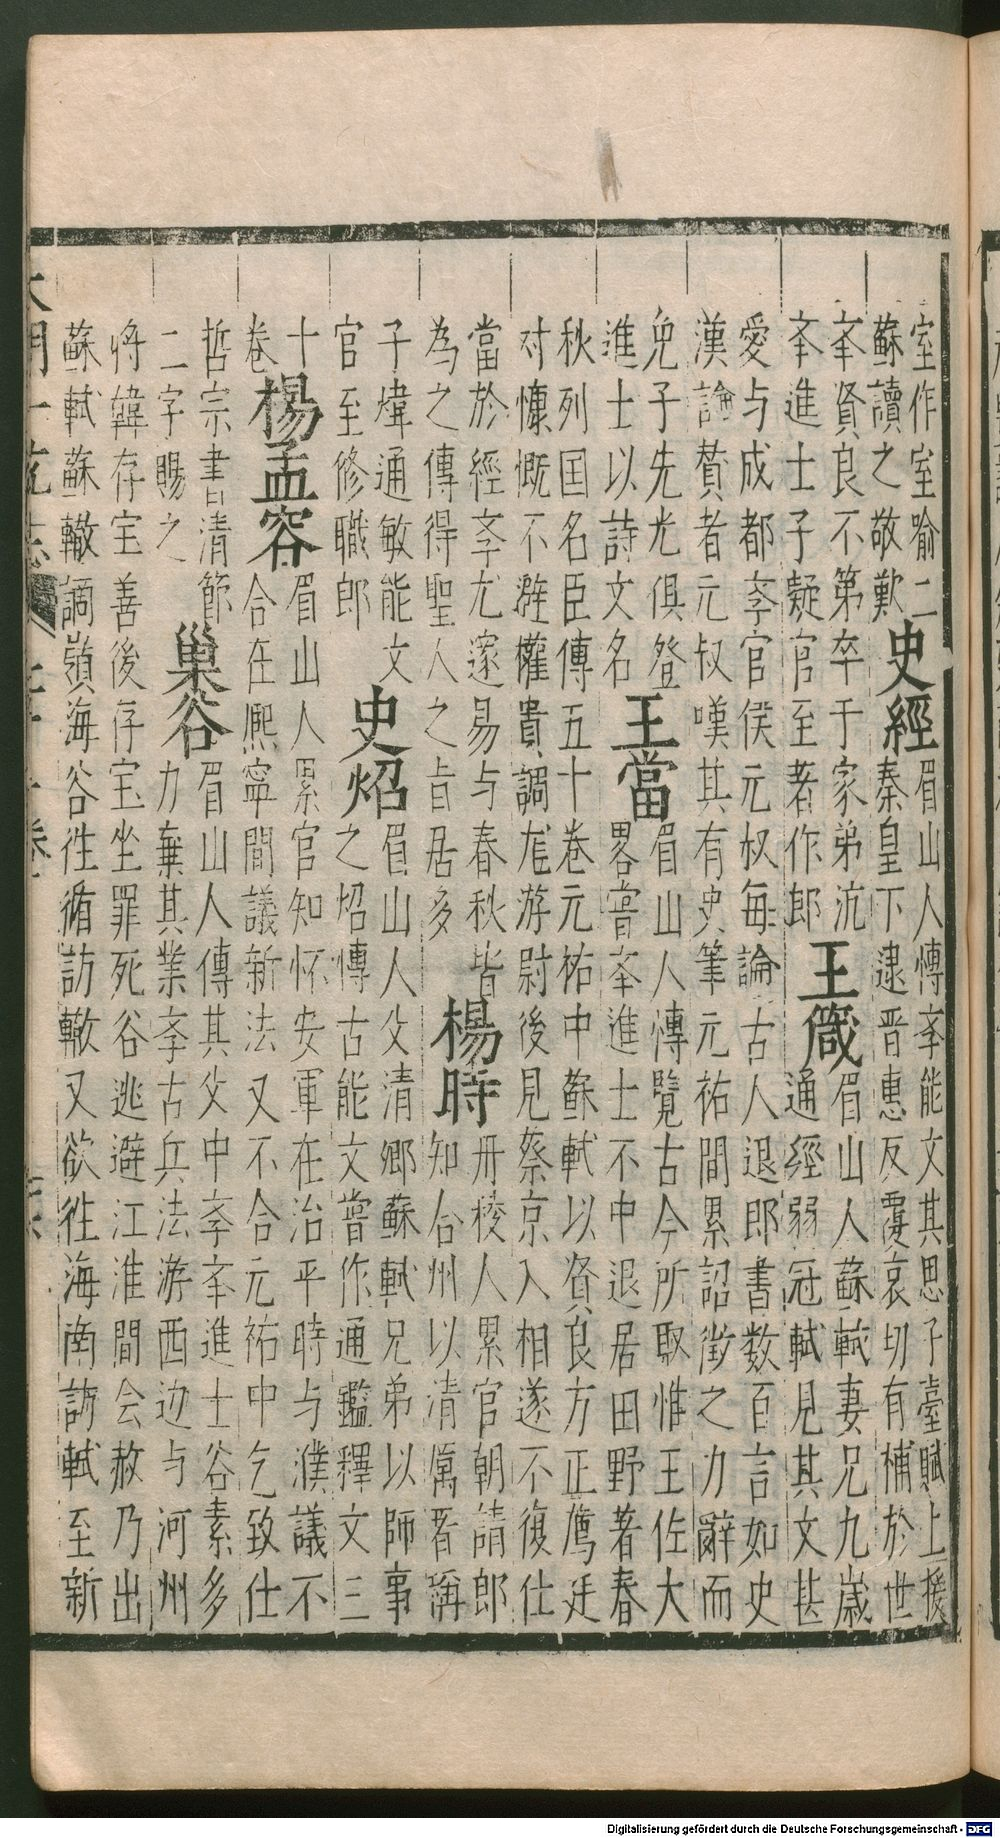 室作室喻二
蘇讀之敬歎
史經
眉山人愽斈能文其思子臺賦上援
秦皇下逮晋惠反覆哀切有補於世
㪯賢良不第卒于家弟沆
㪯進士子疑官至著作郎
王箴
眉山人蘇軾妻兄九歲
通經弱冠軾見其文甚
愛与成都斈官侯元叔每論古人退即書数百言如史
漢論賛者元叔嘆其有史筆元祐間累詔徵之力辭而
免子先光俱登
進士以詩文名
王當
眉山人愽覽古今所取惟王佐大
畧甞㪯進士不中退居田野著春
秋列国名臣傳五十卷元祐中蘇軾以賢良方正薦廷
对慷慨不避權貴調龙游尉後見蔡京入相遂不復仕
當於經斈尤邃易与春秋皆
為之傳得聖人之旨居多
楊時
丹稜人累官朝請郎
知合州以清厲著稱
子煒通敏能文
官至修職郎
史炤
眉山人父清卿蘇軾兄弟以師事
之炤愽古能文嘗作通鑑釋文三
十
卷
楊孟容
眉山人累官知怀安軍在治平時与濮議不
合在熈寧間議新法又不合元祐中乞致仕
哲宗書清節
二字賜之
巢谷
眉山人傳其父中斈㪯進士谷素多
力棄其業斈古兵法游西边与河州
将韓存宝善後存宝坐罪死谷逃避江淮間会赦乃出
蘇軾蘇轍謫嶺海谷徃循訪轍又欲徃海南訪軾至新
大明一統志
Digitalisierung gefördert durch die Deutsche Forschungsgemeinschaft - DFG